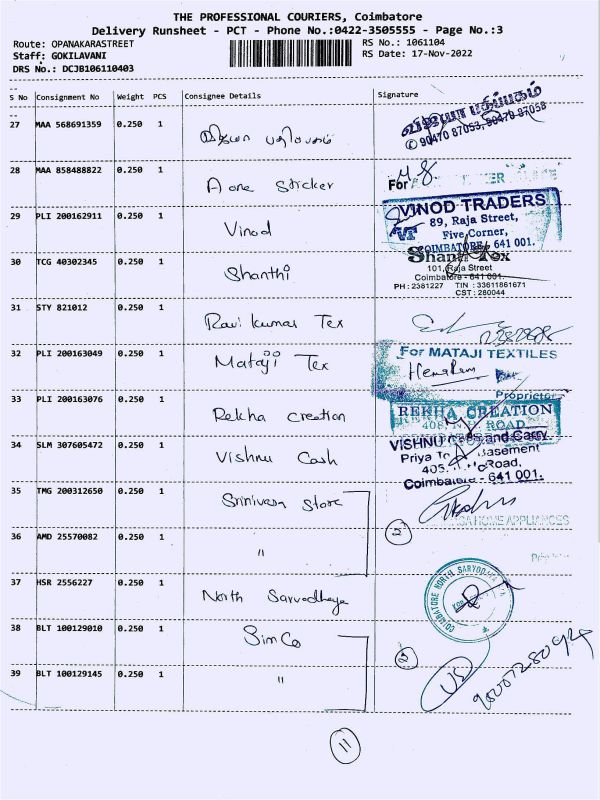 THE PROFESSIONAL COURIERS, Coimbatore
Delivery Runsheet - PCT - Phone No.:0422-3505555 - Page No.:3
Route: OPANAKARASTREET RS No.: 1061104
Staff: GOKILAVANI RS Date: 17-Nov-2022
DRS No.: DCJB106110403
S No Consignment No Weight PCS Consignee Details Signature
27 MAA 568691359 0.250 1 விஜயா பதிப்பகம் விஜயா பதிப்பகம்
90470 87053, 90470 87058
28 MAA 858488822 0.250 1 A one Sticker For
29 PLI 200162911 0.250 1 Vinod VINOD TRADERS
VT 89, Raja Street,
Five Corner,
COIMBATORE - 641 001.
30 TCG 40302345 0.250 1 Shanthi Shanthi Tex
101, Raja Street
Coimbatore - 641 001.
PH : 2381227 TIN : 33611861671
CST : 280044
31 STY 821012 0.250 1 Ravi kumar Tex
32 PLI 200163049 0.250 1 Mataji Tex For MATAJI TEXTILES
HemaRam
Proprietor
33 PLI 200163076 0.250 1 Rekha creation REKHA CREATION
408, N.H. ROAD
34 SLM 307605472 0.250 1 Vishnu Cash VISHNU Cash and Carry
Basement
Road,
Coimbatore - 641 001.
35 TMG 200312650 0.250 1 Srinivasa Store
HOME APPLIANCES
36 AMD 25570082 0.250 1 " 2
37 HSR 2556227 0.250 1 North Sarvodhaya COIMBATORE NORTH SARVODAYA
FOR
38 BLT 100129010 0.250 1 Simco
2
39 BLT 100129145 0.250 1 " US
11